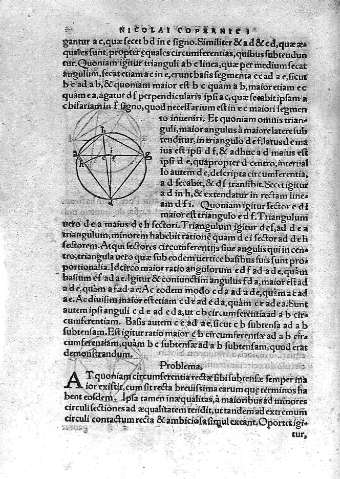 NICOLAI COPERNICI
gantur a c, quæ secet b d in e signo. Similiter & a d & c d, quæ æ-
quales sunt, propter æquales circumferentias, quibus subtendun
tur. Quoniam igitur trianguli a b c linea, quæ per medium secat
angulum, secat etiam a c in e, erunt basis segmenta e c ad a e, sicut
b c ad a b, & quoniam maior est b c quàm a b, maior etiam e c
quàm e a, agatur d f perpendicularis ipsi a c, quæ secabit ipsam a
c bifariam in f signo, quod necessarium est in e c maiori segmen
to inueniri. Et quoniam omnis trian-
guli, maior angulus à maiore latere sub
tenditur, in triangulo d e f, latus d e ma
ius est ipsi d f, & adhuc a d maius est
ipsi d e, quapropter d centro, interual
lo autem d e, descripta circumferentia,
a d secabit, & d f transibit. Secet igitur
a d in h, & extendatur in rectam lineam
d f i. Quoniam igitur sector e d i
maior est triangulo e d f. Triangulum
uero d e a maius d e h sectori. Triangulum igitur d e f, ad d e a
triangulum, minorem habebit rationē quàm d e i sector ad d e h
sectorem. Atqui sectores circūferentijs siue angulis qui in cen-
tro, triangula uero quæ sub eodem uertice basibus suis sunt pro-
portionalia. Idcirco maior ratio angulorum e d f ad a d e, quàm
basium e f ad a e. Igitur & coniunctim angulus f d a, maior est ad
a d e, quàm a f ad a e. Ac eodem modo c d a ad a d e, quàm a c ad
a e. Ac diuisim maior est etiam c d e ad e d a, quàm c e ad e a. Sunt
autem ipsi anguli c d e ad e d a, ut c b circumferentia ad a b cir-
cumferentiam. Basis autem c e ad a e, sicut c b subtensa ad a b
subtensam. Est igitur ratio maior c b circumferentiæ ad a b cir-
cumferentiam, quàm b c subtensæ ad a b subtensam, quod erat
demonstrandum.
Problema.
AT quoniam circumferentia rectæ sibi subtensæ semper ma
ior existit, cum sit recta breuissima earum quæ terminos ha
bent eosdem. Ipsa tamen inæqualitas, à maioribus ad minores
circuli sectiones ad æqualitatem tendit, ut tandem ad extremum
circuli contactum recta & ambitiosa simul exeant. Oportet igi-
tur,